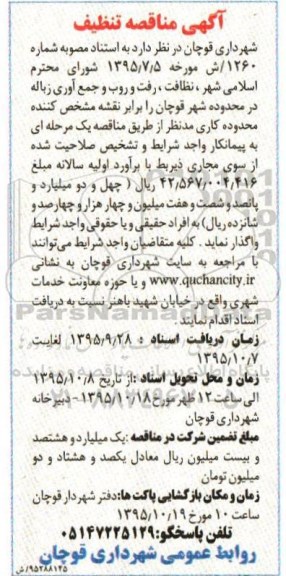 آگهی مناقصه تنظیف
شهرداری قوچان در نظر دارد به استناد مصوبه شماره
۱۲۶۰/ش مورخه ۱۳۹۵/۷/۵ شورای محترم
اسلامی شهر ، نظافت ، رفت و روب و جمع آوری زباله
در محدوده شهر قوچان را برابر نقشه مشخص کننده
محدوده کاری مدنظر از طریق مناقصه یک مرحله ای
به پیمانکار واجد شرایط و تشخیص صلاحیت شده
از سوی مجاری ذیربط با برآورد اولیه سالانه مبلغ
۴۲/۵۶۷/۰۰۴/۴۱۶ ریال ( چهل و دو میلیارد و
پانصد و شصت و هفت میلیون و چهار هزار و چهارصد و
شانزده ریال) به افراد حقیقی و یا حقوقی واجد شرایط
واگذار نماید . کلیه متقاضیان واجد شرایط می‌توانند
با مراجعه به سایت شهرداری قوچان به نشانی
www.quchancity.ir و یا حوزه معاونت خدمات
شهری واقع در خیابان شهید باهنر نسبت به دریافت
اسناد اقدام نمایند .
زمان دریافت اسناد : ۱۳۹۵/۹/۲۸ لغایت
۱۳۹۵/۱۰/۷
زمان و محل تحویل اسناد :از تاریخ ۱۳۹۵/۱۰/۸
الی ساعت ۱۲ ظهر مورخ ۱۳۹۵/۱۰/۱۸ - دبیرخانه
شهرداری قوچان
مبلغ تضمین شرکت در مناقصه :یک میلیارد و هشتصد
و بیست میلیون ریال معادل یکصد و هشتاد و دو
میلیون تومان
زمان و مکان بازگشایی پاکت ها:دفتر شهردار قوچان
ساعت ۱۰ مورخ ۱۳۹۵/۱۰/۱۹
تلفن پاسخگو:۰۵۱۴۷۲۲۵۱۲۹
روابط عمومی شهرداری قوچان
۹۵۲۸۸۱۲۵/ش
ParsNamadData